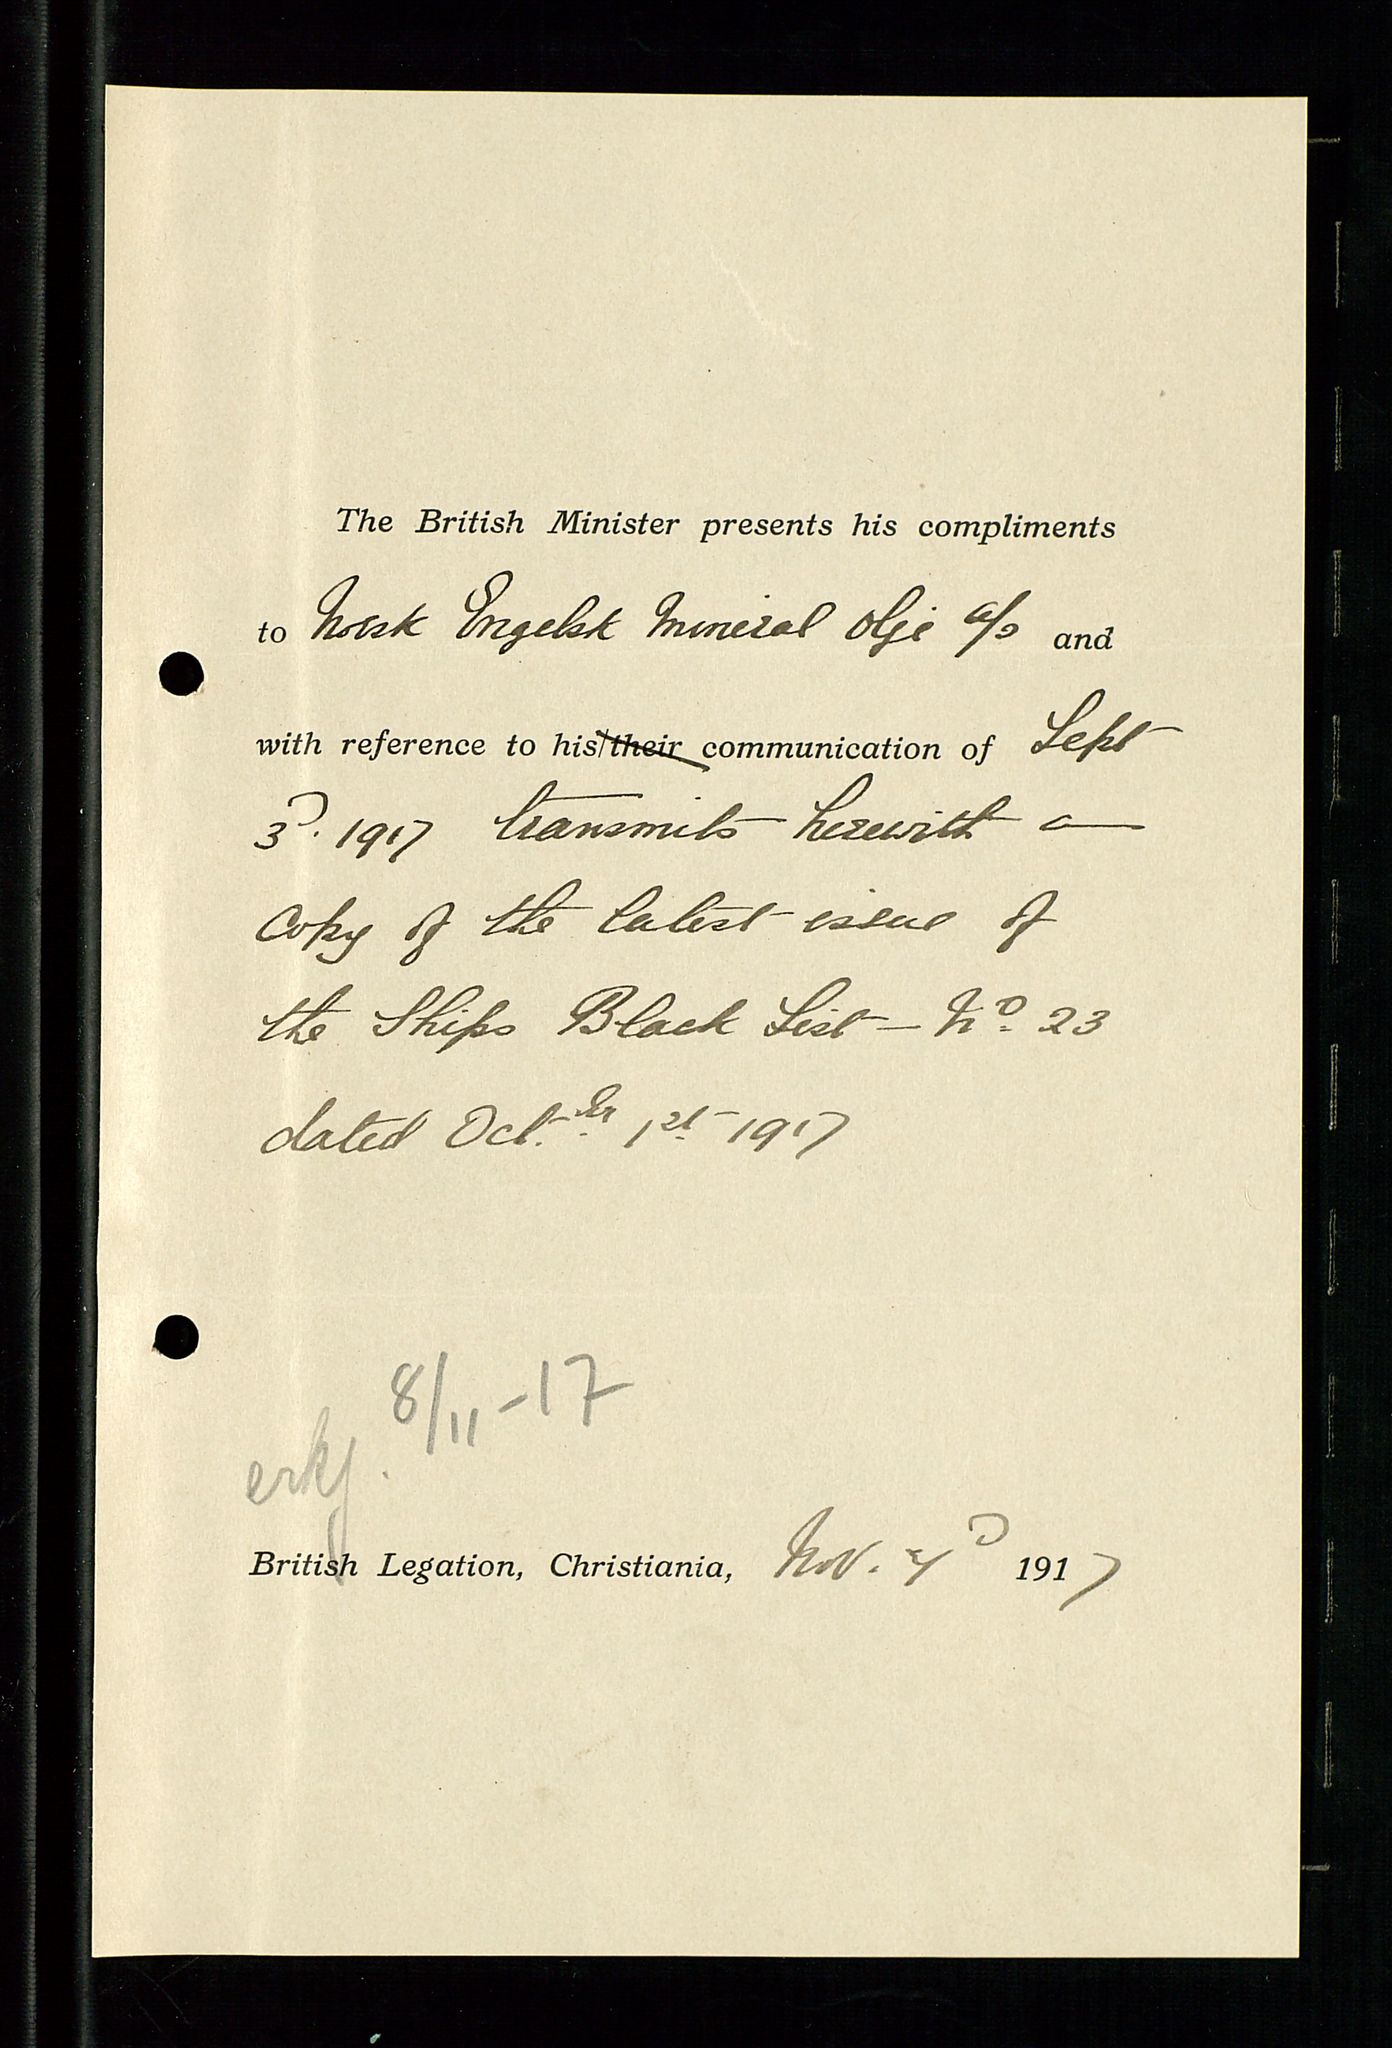 The British Minister presents his compliments
to Norsk Engelsk Mineral Olje A/S and
with reference to his/their communication of Sept
3D. 1917 transmits herewith a
copy of the latest issue of
the Ships Black List - No. 23
dated Oct.ber 1st 1917
8/11-17
erkj.
British Legation, Christiania, Nov. 1917